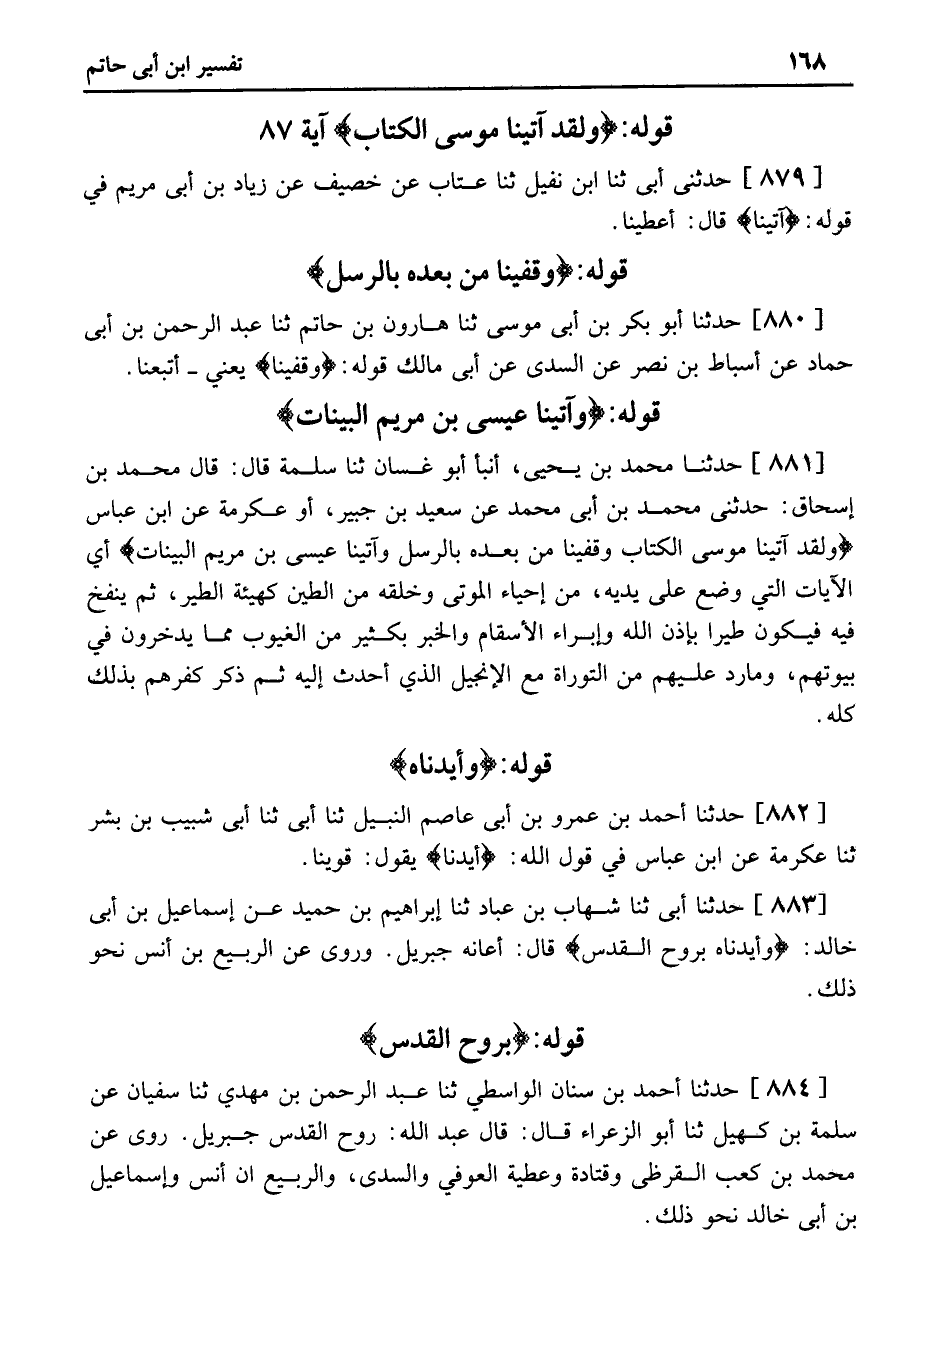 ١٦٨ تفسير ابن أبى حاتم
قوله: ﴿ولقد آتينا موسى الكتاب﴾ آية ٨٧
[ ٨٧٩ ] حدثنى أبى ثنا ابن نفيل ثنا عـتاب عن خصيف عن زياد بن أبى مريم في
قوله: ﴿آتينا﴾ قال: أعطينا.
قوله: ﴿وقفينا من بعده بالرسل﴾
[ ٨٨٠] حدثنا أبو بكر بن أبى موسى ثنا هـارون بن حاتم ثنا عبد الرحمن بن أبى
حماد عن أسباط بن نصر عن السدى عن أبى مالك قوله: ﴿وقفينا﴾ يعني ـ أتبعنا.
قوله: ﴿وآتينا عيسى بن مريم البينات﴾
[٨٨١ ] حدثنـا محمد بن يـحيى، أنبأ أبو غـسان ثنا سلـمة قال: قال محـمد بن
إسحاق: حدثنى محمـد بن أبى محمد عن سعيد بن جبير، أو عـكرمة عن ابن عباس
﴿ولقد آتينا موسى الكتاب وقفينا من بعـده بالرسل وآتينا عيسى بن مريم البينات﴾ أي
الآيات التي وضع على يديه، من إحياء الموتى وخلقه من الطين كهيئة الطير، ثم ينفخ
فيه فيـكون طيرا بإذن الله وإبـراء الأسقام والخبر بكـثير من الغيوب ممـا يدخرون في
بيوتهم، ومارد علـيهم من التوراة مع الإنجيل الذي أحدث إليه ثـم ذكر كفرهم بذلك
كله.
قوله: ﴿وأيدناه﴾
[ ٨٨٢] حدثنا أحمد بن عمرو بن أبى عاصم النبـيل ثنا أبى ثنا أبى شبيب بن بشر
ثنا عكرمة عن ابن عباس في قول الله: ﴿أيدنا﴾ يقول: قوينا.
[٨٨٣ ] حدثنا أبى ثنا شـهاب بن عباد ثنا إبراهيم بن حميد عـن إسماعيل بن أبى
خالد: ﴿وأيدناه بروح الـقدس﴾ قال: أعانه جبريل. وروى عن الربـيع بن أنس نحو
ذلك.
قوله: ﴿بروح القدس﴾
[ ٨٨٤ ] حدثنا أحمد بن سنان الواسطي ثنا عـبد الرحمن بن مهدي ثنا سفيان عن
سلمة بن كـهيل ثنا أبو الزعراء قـال: قال عبد الله: روح القدس جـبريل. روى عن
محمد بن كعب الـقرظى وقتادة وعطية العوفي والسدى، والربـيع ان أنس وإسماعيل
بن أبى خالد نحو ذلك.